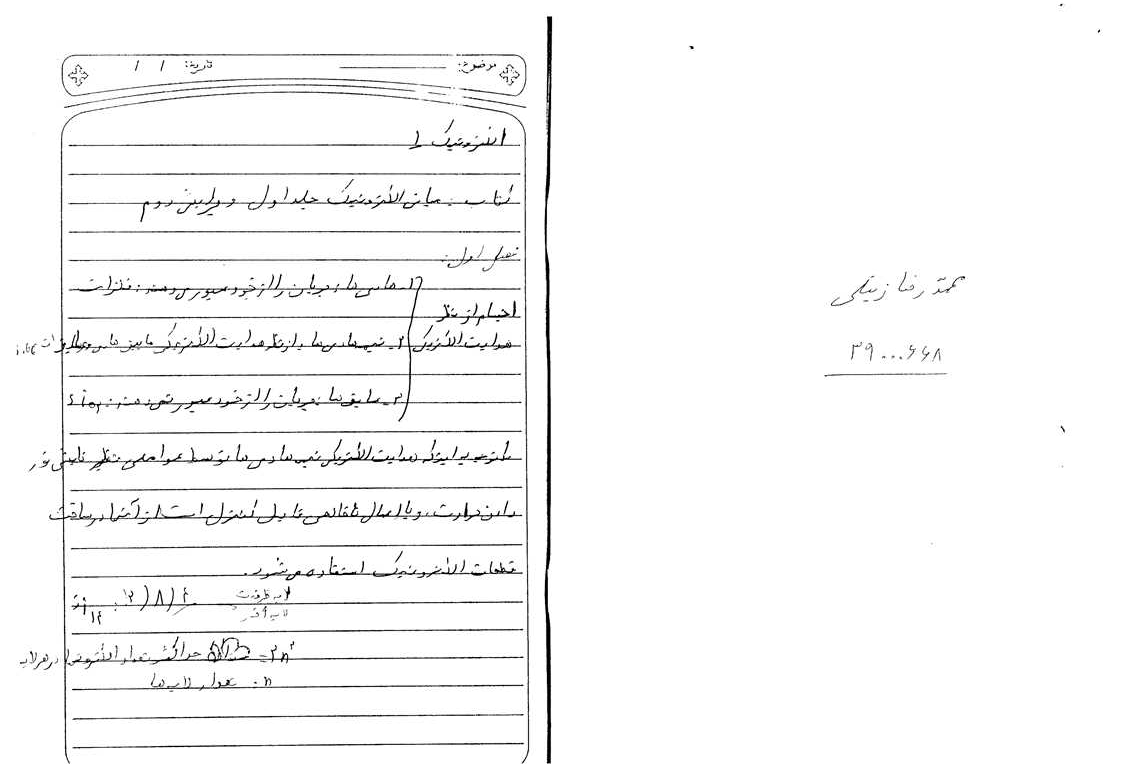 موضوع: تاریخ: / /
الکترونیک 1
کتاب: مبانی الکترونیک جلد اول ویرایش دوم
فصل اول:
۱- هادی ها: جریان را از خود عبور می دهند: فلزات
اجسام از نظر
هدایت الکتریکی ۲- نیمه هادی ها: از نظر هدایت الکتریکی ما بین هادی و عایق
۳- عایق ها: جریان را از خود عبور نمی دهند:
با توجه به اینکه هدایت الکتریکی نیمه هادی ها توسط عواملی نظیر تابش نور
دادن حرارت، و یا اعمال ناخالصی قابل کنترل است از آنها در ساخت
قطعات الکترونیک استفاده می شود.
لایه ظرفیت
لایه آخر
2n² = حداکثر تعداد الکترونها در هر لایه
n: تعداد لایه ها
محمد رضا زینلی
۳۹۰۰۰۶۶۸